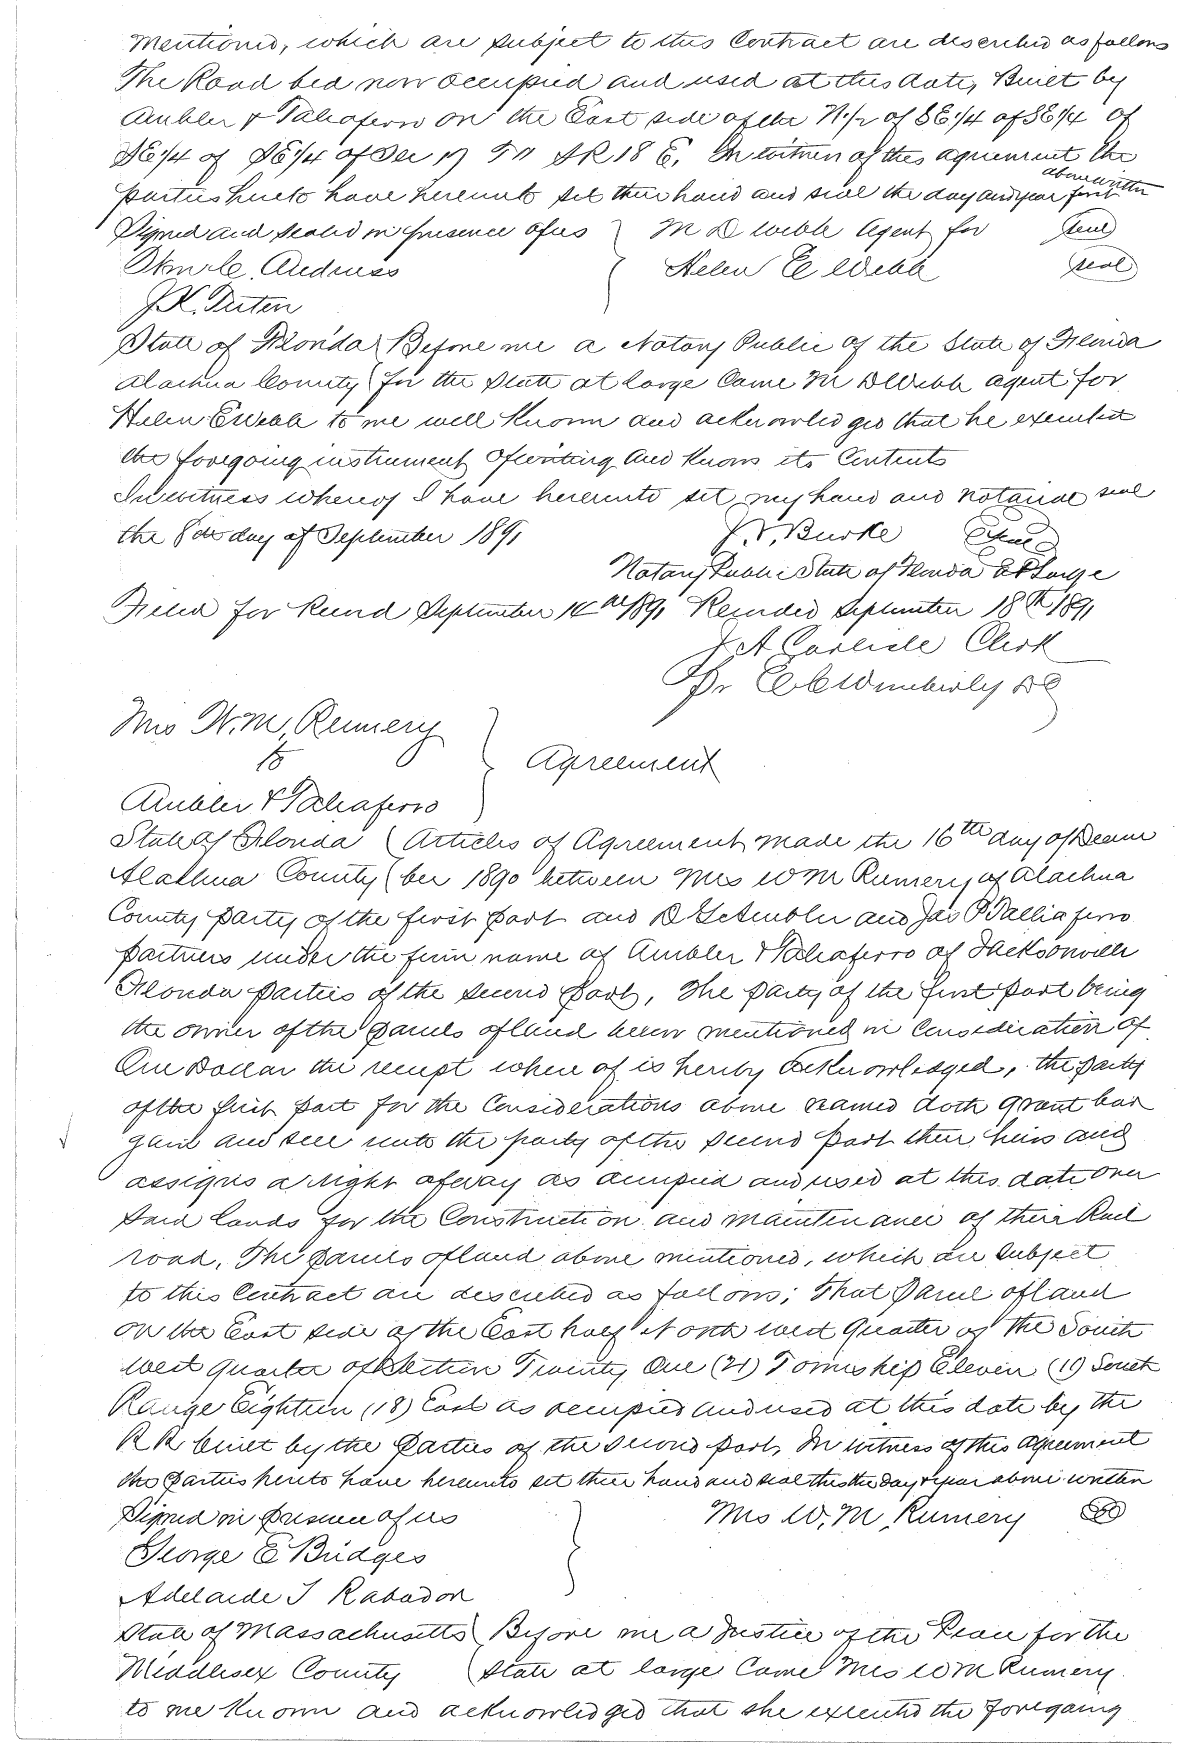 mentioned, which are subject to this Contract are described as follows
The Road bed now occupied and used at this date, Built by
Ambler & Taliaferro on the East side of the N 1/2 of SE 1/4 of SE 1/4 of
SE 1/4 of SE 1/4 of Sec 17 T 11 S R 18 E. In witness of this agreement the
parties hereto have hereunto set their hand and seal the day and year first above written
Signed and sealed in presence of us } M D Webb Agent for seal
Andruss } Helen E Webb seal
J. K. Tuten
State of Florida } Before me a Notary Public of the State of Florida
Alachua County } for the State at large Came M D Webb agent for
Helen E Webb to me well Known and acknowledged that he executed
the foregoing instrument of writing and Knows its Contents
In witness whereof I have hereunto set my hand and notarial seal
the 8th day of September 1891 J. V. Burke Seal
Notary Public State of Florida at Large
Filed for Record September 14th 1891 Recorded September 18th 1891
J A Carlisle Clerk
Pr E C Wimberly D C
Mrs W. M. Rumery
to } Agreement
Ambler & Taliaferro
State of Florida } Articles of Agreement made the 16th day of Decem
Alachua County } ber 1890 between Mrs W M Rumery of Alachua
County party of the first part and D G Ambler and Jas P Talliaferro
partners under the firm name of Ambler & Taliaferro of Jacksonville
Florida parties of the second part, The party of the first part being
the owner of the parcels of land below mentioned in Consideration of
One Dollar the receipt where of is hereby acknowledged, the party
of the first part for the Considerations above named doth grant bar
gain and sell unto the party of the second part their heirs and
assigns a right of way as occupied and used at this date over
said lands for the Construction and maintenance of their Rail
road, The parcels of land above mentioned, which are subject
to this Contract are described as follows; That Parcel of land
on the East side of the East half North west Quarter of the South
west quarter of Section Twenty One (21) Township Eleven (11) South
Range Eighteen (18) East as occupied and used at this date by the
RR built by the Parties of the second part, In witness of this Agreement
the parties hereto have hereunto set their hand and seal this the day & year above written
Signed in presence of us } Mrs W. M. Rumery
George E Bridges
Adelaide J Rabadon
State of Massachusetts } Before me a Justice of the Peace for the
Middlesex County } State at large Came Mrs W M Rumery
to me Known and acknowledged that she executed the foregoing